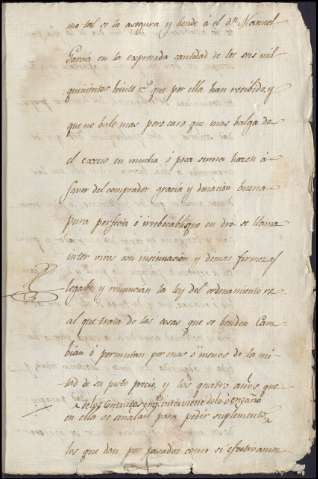 mo tal se la asegura y bende á el dn. Manuel
Garcia en la expresada cantidad de los seis mil
quinientos beinte rs. que por ella han recibido, y
que no bale mas pero caso que mas balga de
el exceso en mucha ó poca suma hazen á
favor del comprador gracia y donacion buena
pura perfecta é irrebocable que en dro. se llama
inter vivos con insinuacion y demas firmezas
legales y renuncian la ley del ordenamiento re
al que trata de las cosas que se benden Cam
bian ó permutan por mas ó menos de la mi
tad de su justo precio, y los quatro años que
en ella se señalan para pedir suplemento
los que dan por pasados como si efectivamen